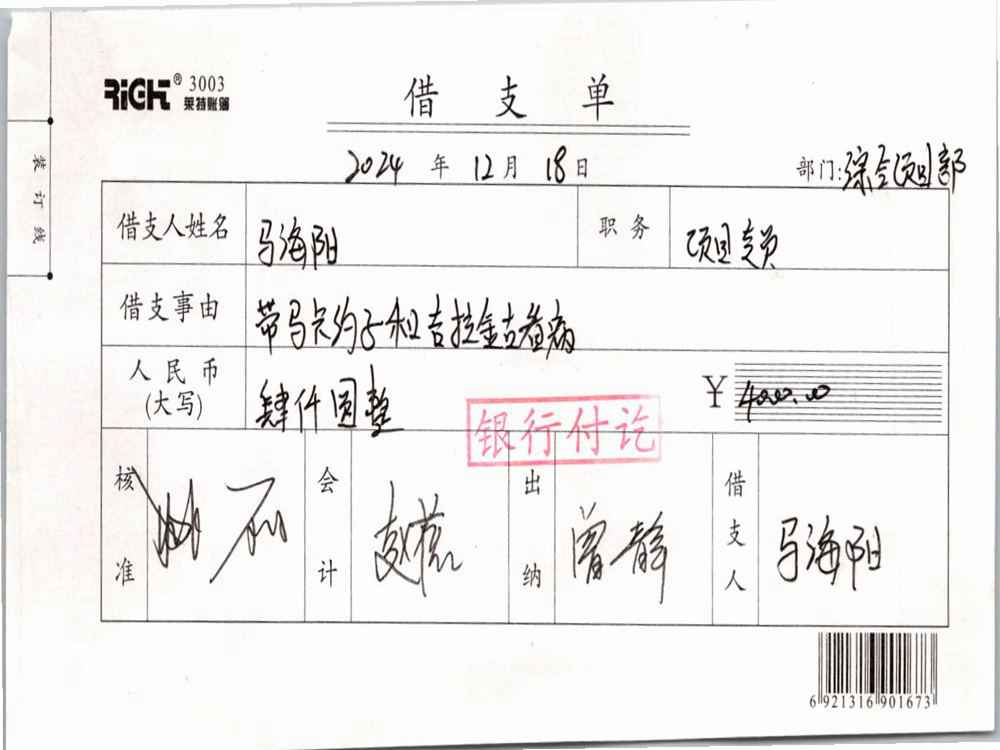 RiGHT® 3003
莱特账簿
借支单
2024 年 12 月 18 日
部门:综合项目部
装订线
借支人姓名 马海阳 职务 项目专员
借支事由 带马卡约子和吉拉金古看病
人民币(大写) 肆仟圆整 ¥ 4000.00
银行付讫
核准 会计 出纳 曾静 借支人 马海阳
6 921316 901673